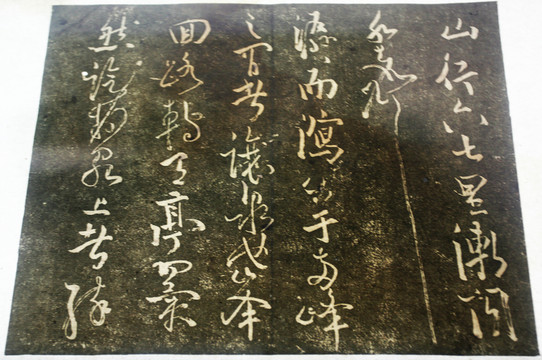 山行六七里漸聞
水聲
潺〻而瀉出于兩峰
之間者讓泉也峯
回路轉有亭翼
然臨於泉上者醉